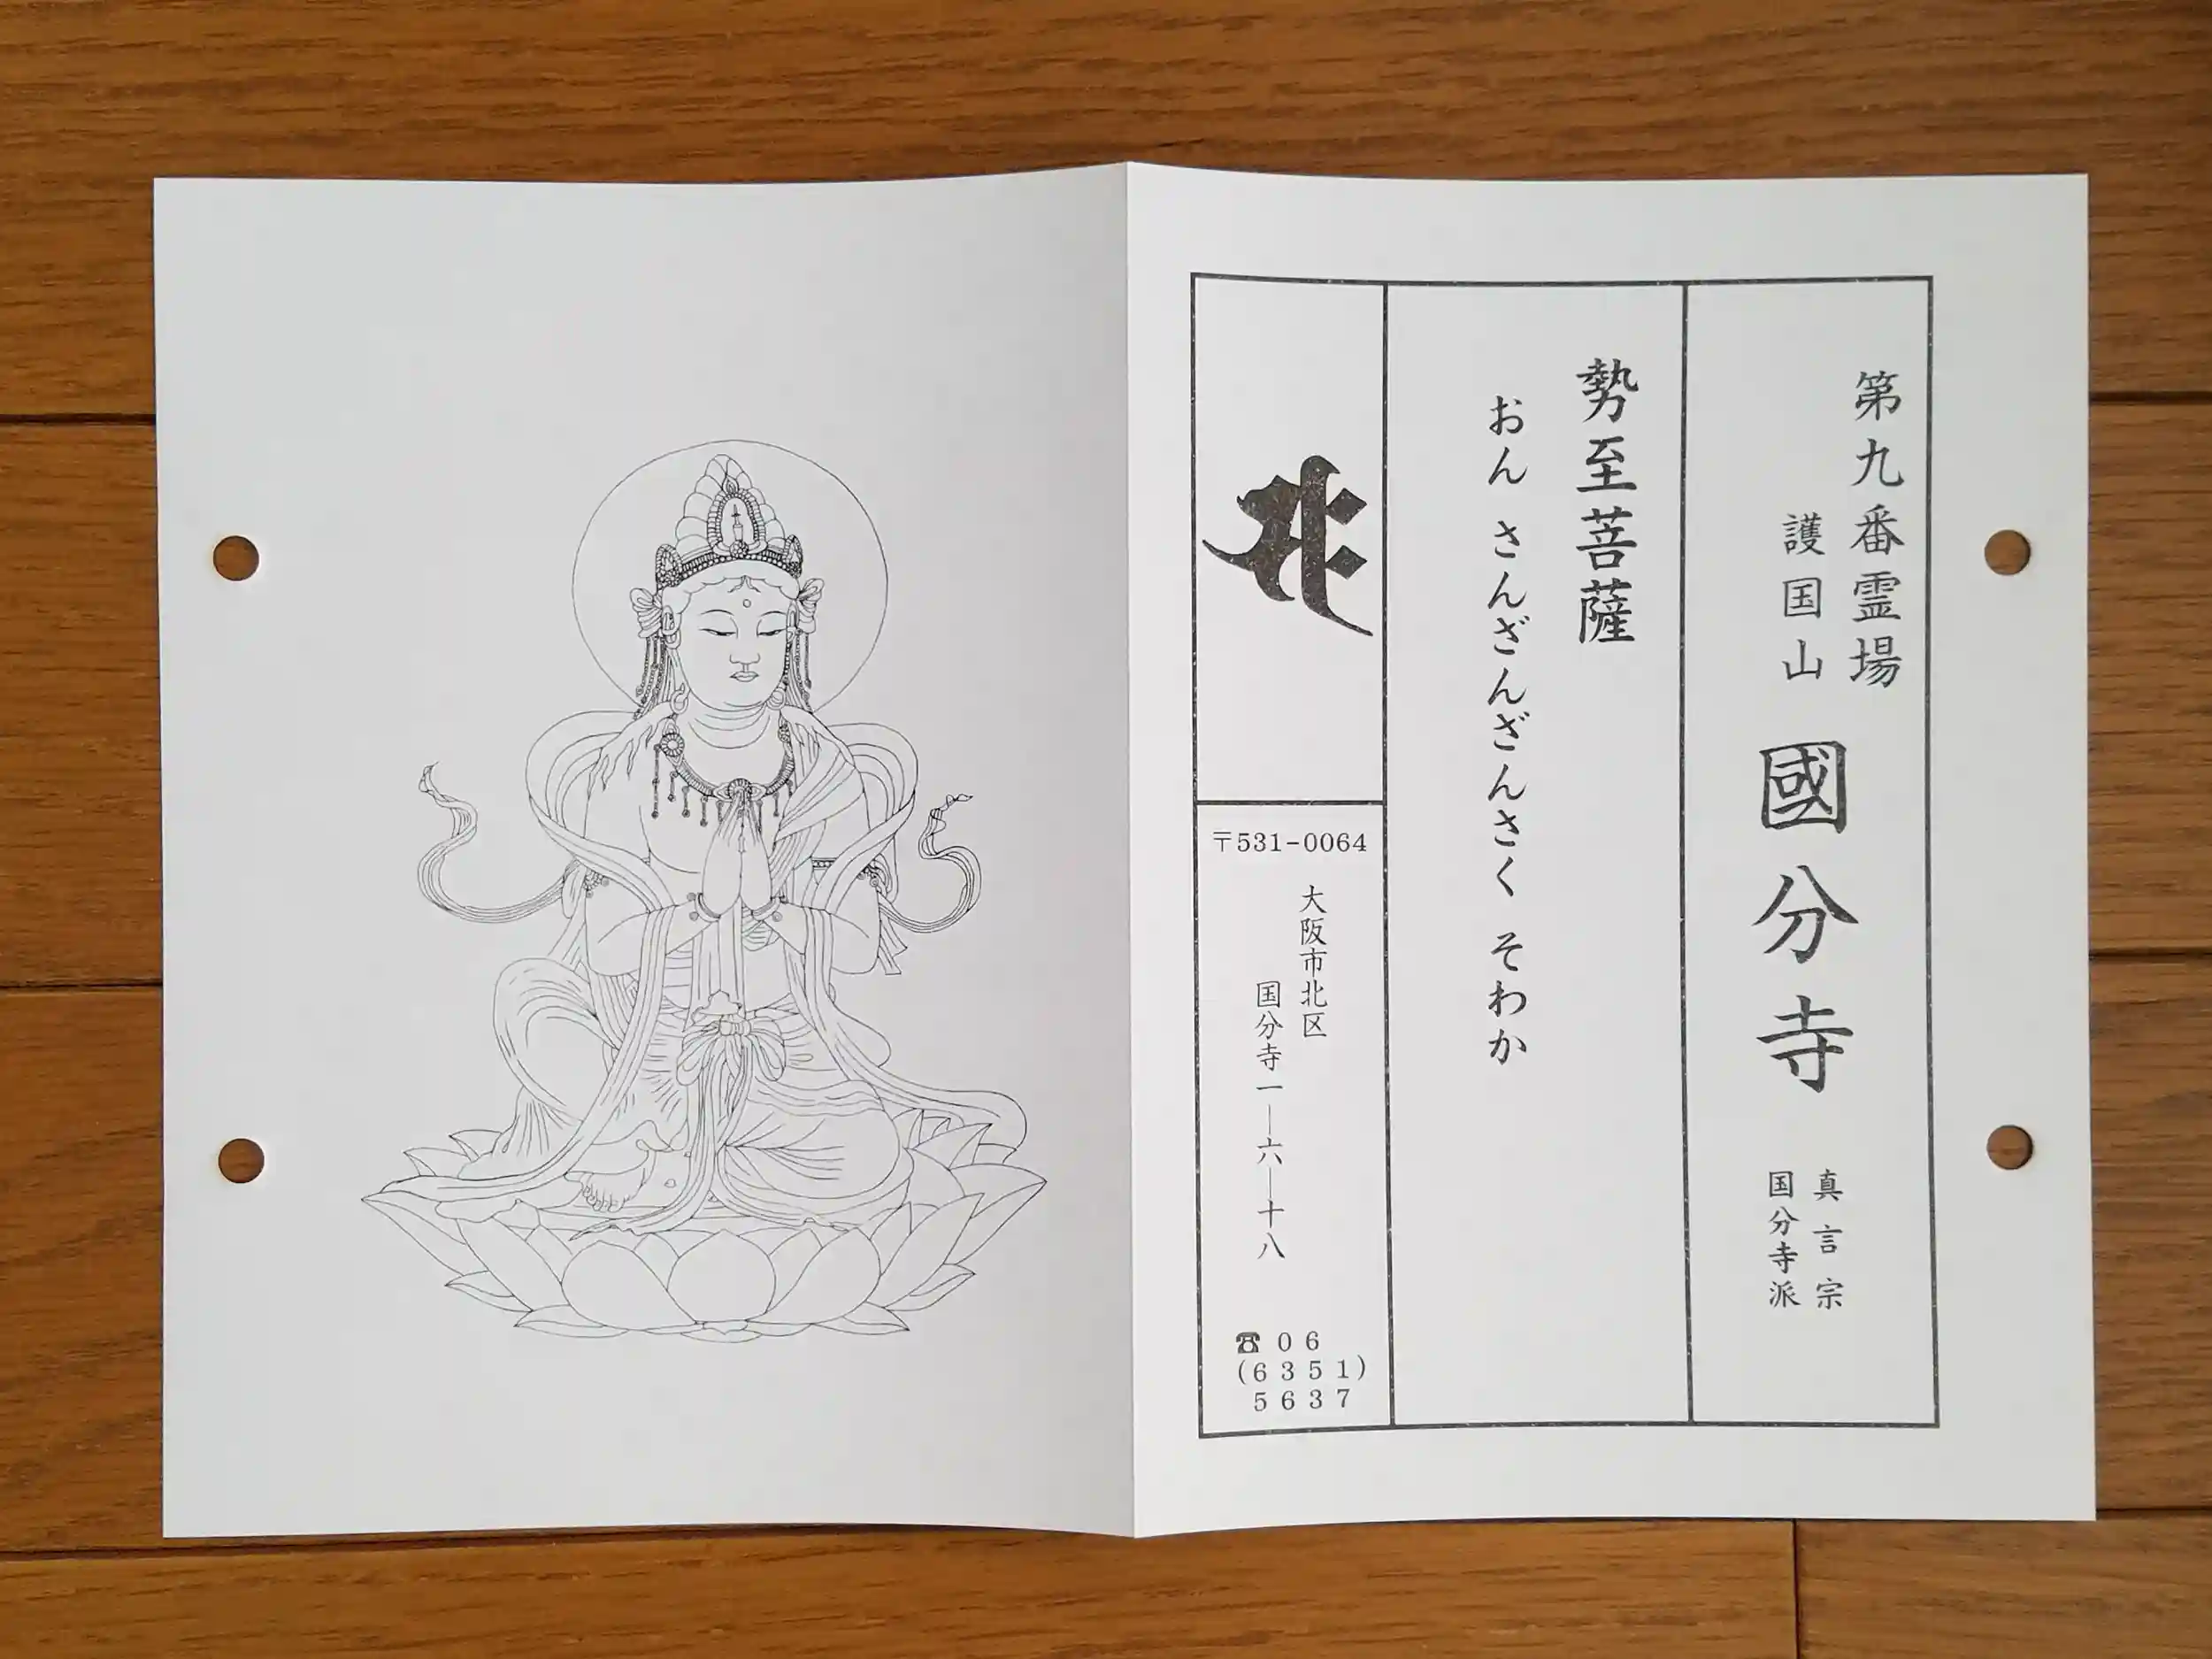 第九番霊場
護国山
國分寺
真言宗
国分寺派
勢至菩薩
おん さんざんざんさく そわか
〒531-0064
大阪市北区
国分寺一―六―十八
☎06
(6351)
5637